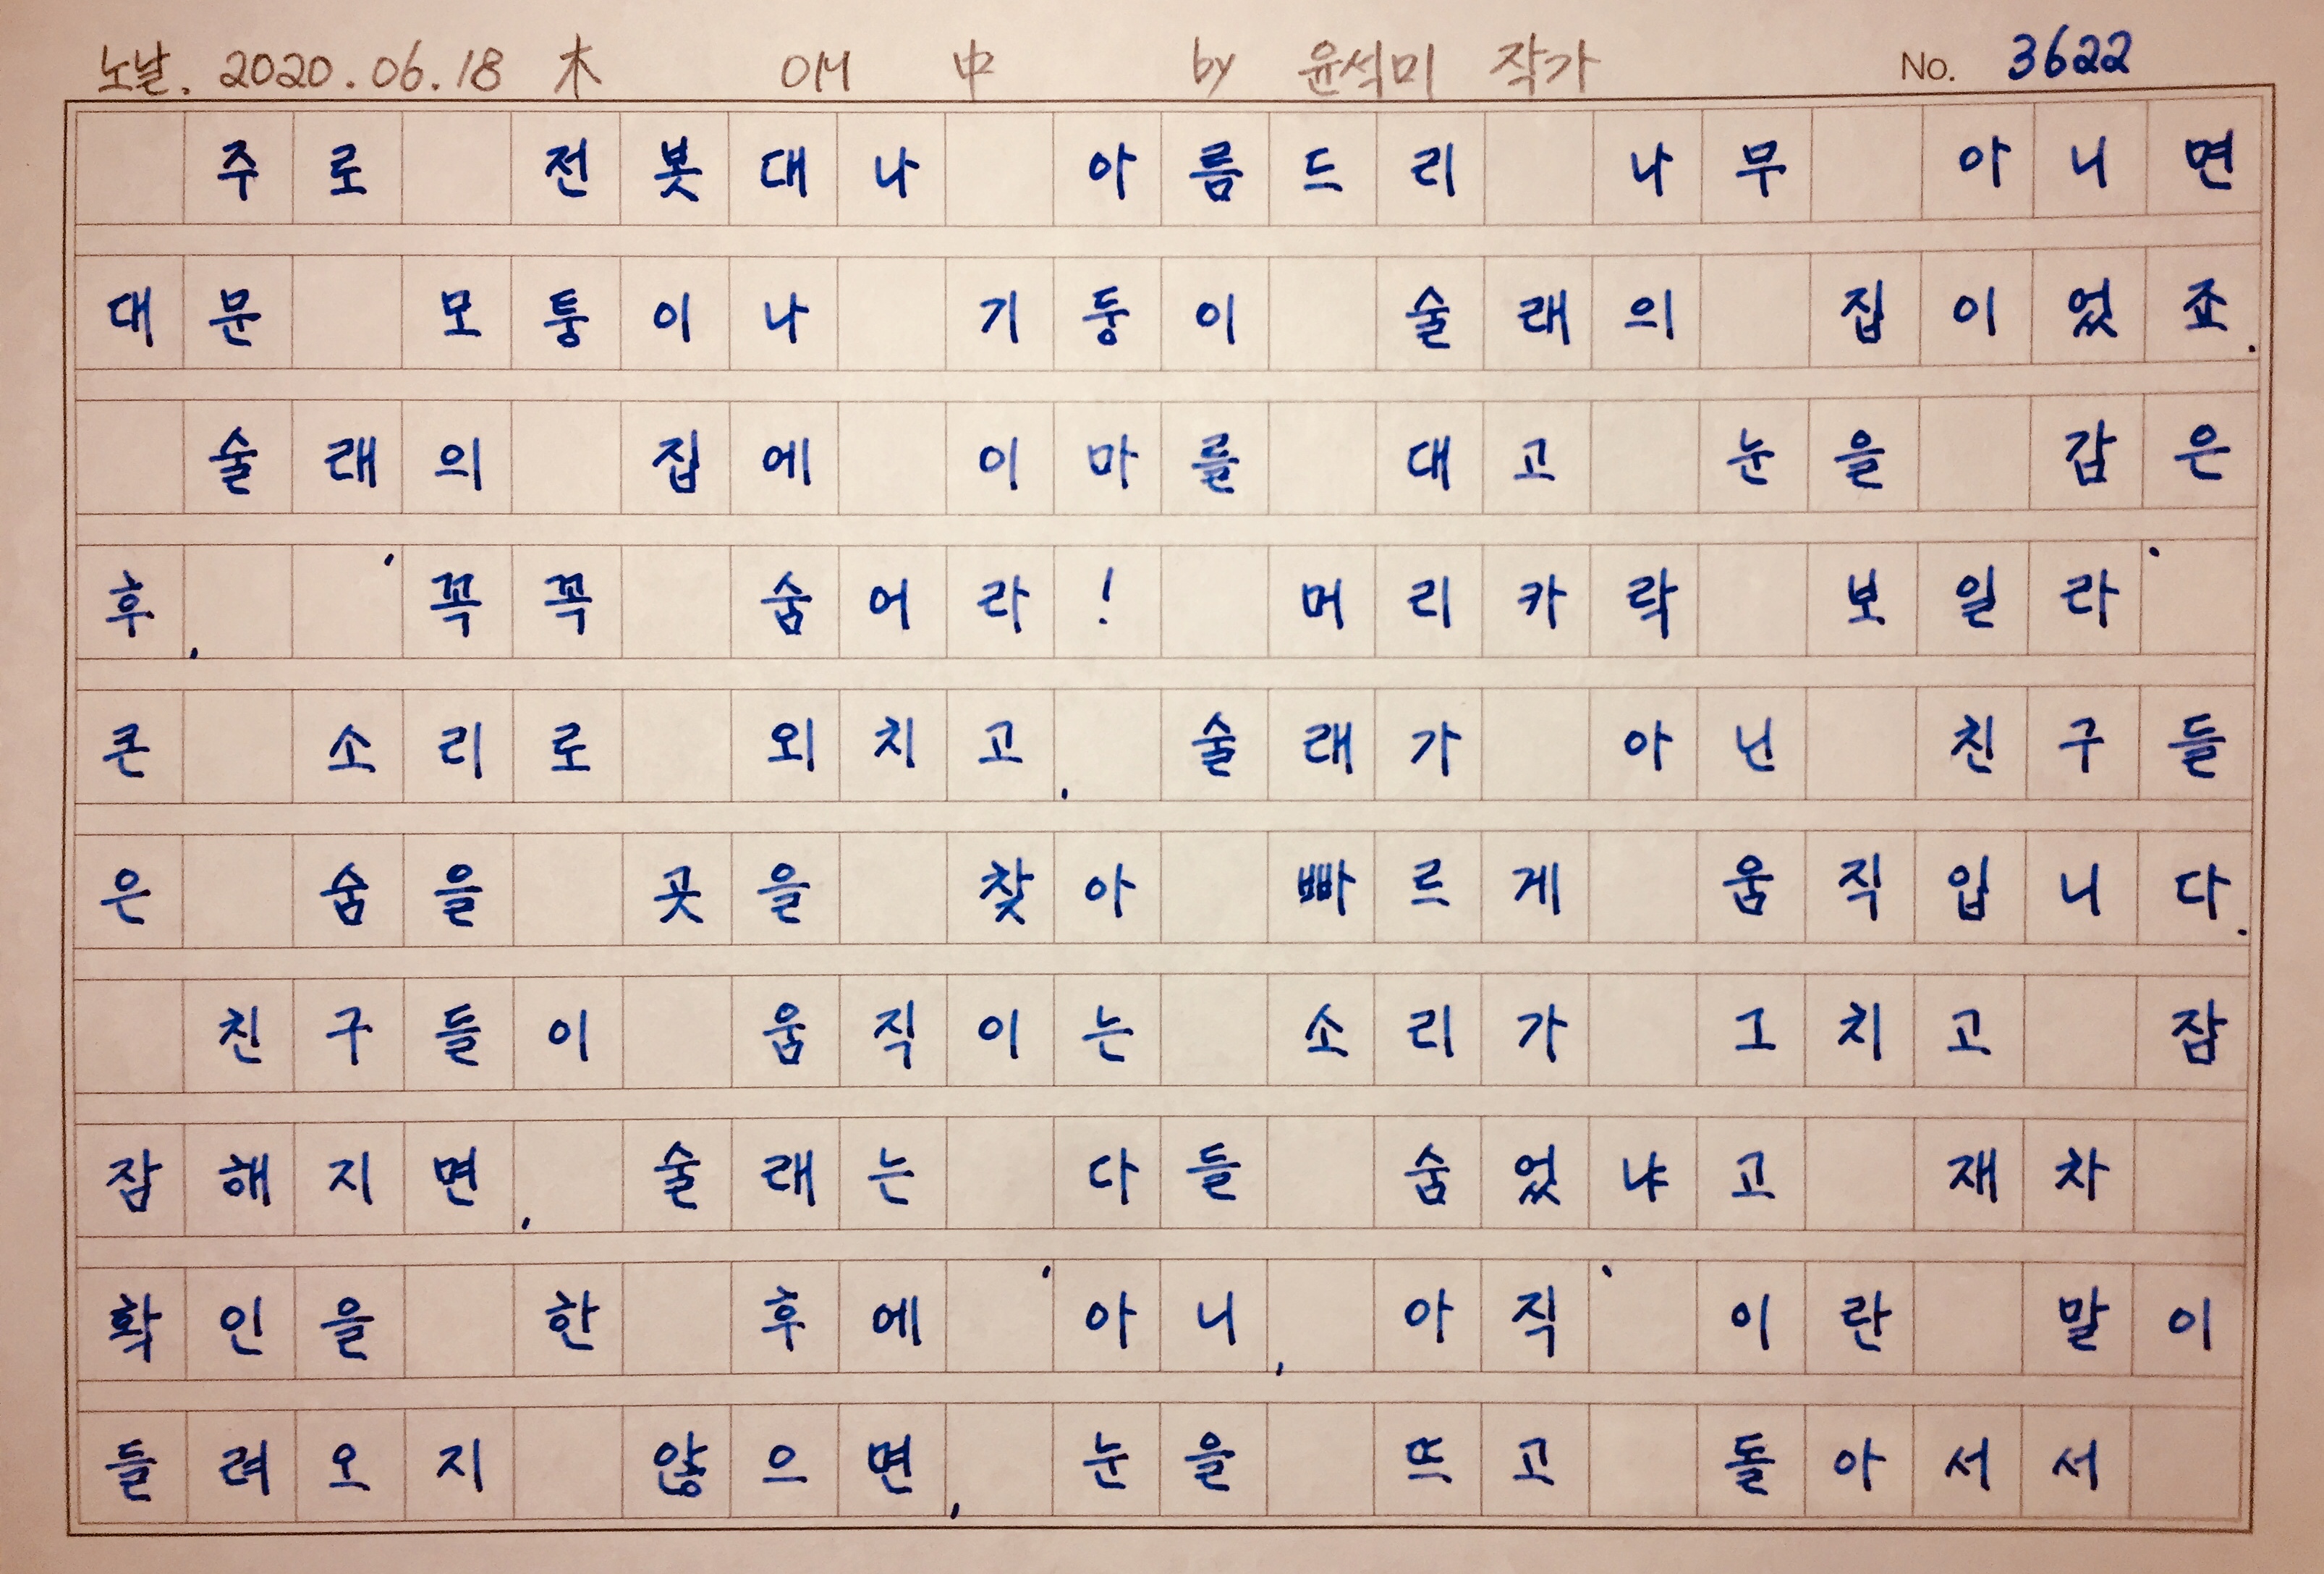 노날. 2020.06.18 木 OM 中 by 윤석미 작가 No. 3622
주로 전봇대나 아름드리 나무 아니면
대문 모퉁이나 기둥이 술래의 집이었죠.
술래의 집에 이마를 대고 눈을 감은
후, '꼭꼭 숨어라! 머리카락 보일라'
큰 소리로 외치고, 술래가 아닌 친구들
은 숨을 곳을 찾아 빠르게 움직입니다.
친구들이 움직이는 소리가 그치고 잠
잠해지면, 술래는 다들 숨었냐고 재차
확인을 한 후에 '아니, 아직'이란 말이
들려오지 않으면, 눈을 뜨고 돌아서서